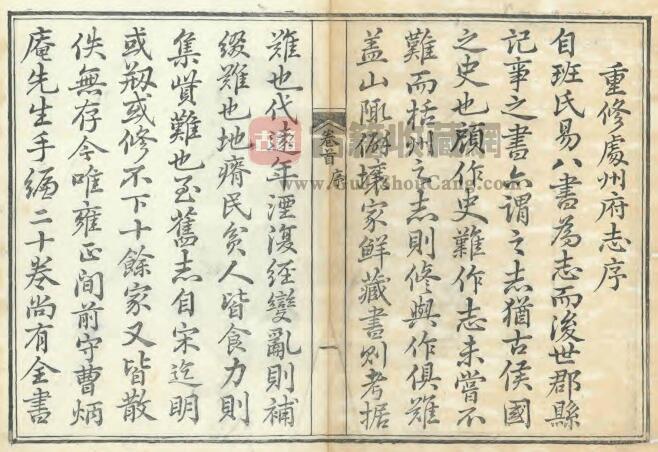 重修處州府志序
自班氏易八書為志而後世郡縣
記事之書亦謂之志猶古侯國
之史也顧作史難作志未嘗不
難而栝州之志則修與作俱難
蓋山陬僻壤家鮮藏書則考据
難也代逺年湮復經變亂則補
綴難也地瘠民貧人皆食力則
集貲難也至舊志自宋迄明
或剏或修不下十餘家又皆散
佚無存今唯雍正間前守曹炳
庵先生手緬二十卷尚有全書
卷首序
一
www.GujiShouCang.com